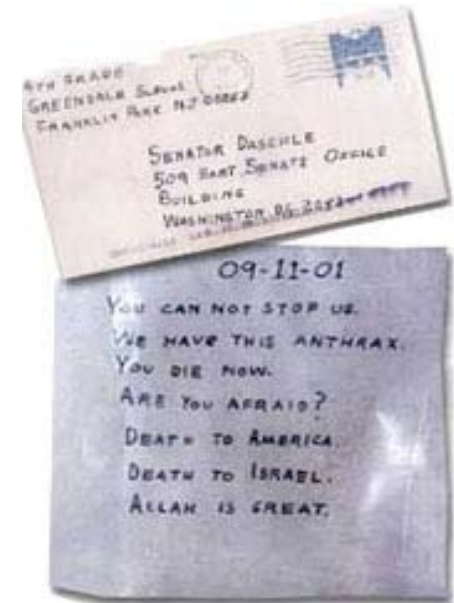 4TH GRADE
GREENDALE SCHOOL
FRANKLIN PARK NJ 08852
SENATOR DASCHLE
509 HART SENATE OFFICE
BUILDING
WASHINGTON DC 205
09-11-01
YOU CAN NOT STOP US.
WE HAVE THIS ANTHRAX.
YOU DIE NOW.
ARE YOU AFRAID?
DEATH TO AMERICA.
DEATH TO ISRAEL.
ALLAH IS GREAT.